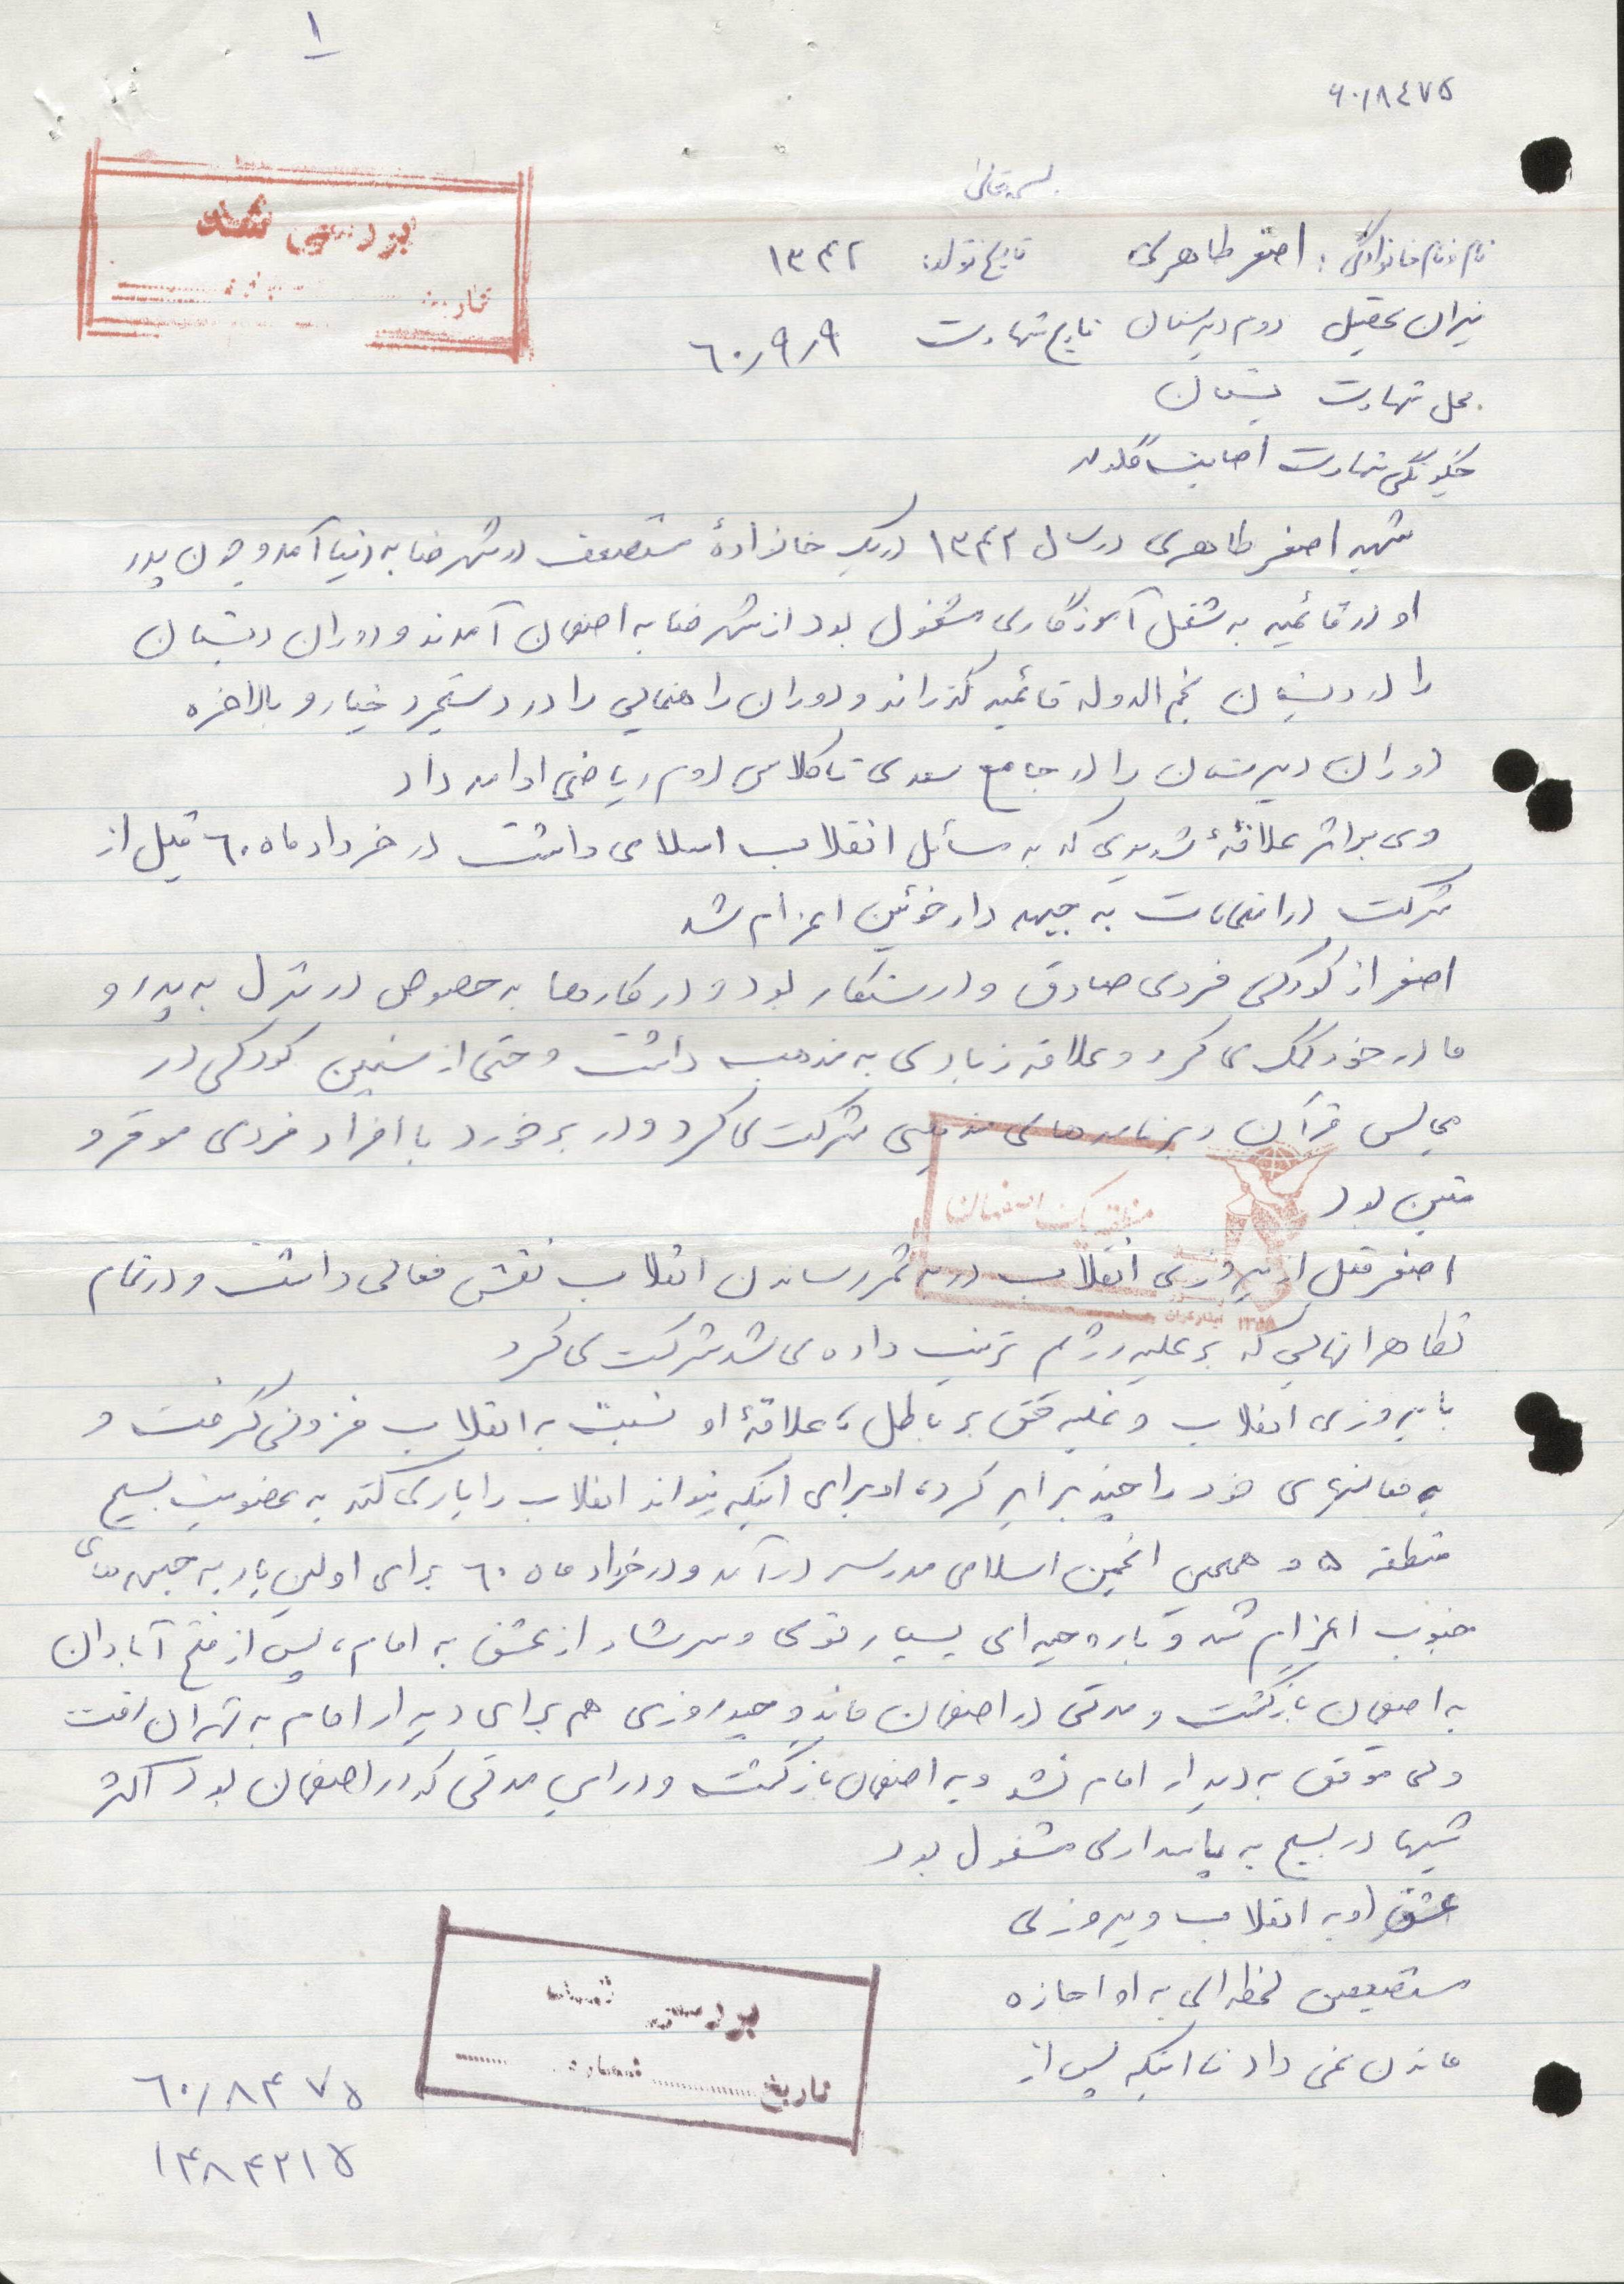 ۱
۶۰/۸٤۷۵
بسمه تعالی
بررسی شد
تاریخ
نام و نام خانوادگی: اصغر طاهری تاریخ تولد: ۱۳۴۲
میزان تحصیل دوم دبیرستان تاریخ شهادت ٦۰/۹/۹
محل شهادت بستان
چگونگی شهادت اصابت گلوله
شهید اصغر طاهری در سال ۱۳۴۲ در یک خانوادهٔ مستضعف در شهرضا به دنیا آمد و چون پدر
او در قائمیه به شغل آموزگاری مشغول بود از شهرضا به اصفهان آمدند و دوران دبستان
را در دبستان نجم الدوله قائمیه گذراند و دوران راهنمایی را در دستجرد خیار و بالاخره
دوران دبیرستان را در جامع سعدی تا کلاس دوم ریاضی ادامه داد
وی بر اثر علاقهٔ شدیدی که به مسائل انقلاب اسلامی داشت در خرداد ماه ٦۰ قبل از
شرکت در امتحانات به جبهه دارخوئین اعزام شد
اصغر از کودکی فردی صادق و درستکار بود و در کارها به خصوص در منزل به پدر و
مادر خود کمک می کرد و علاقه زیادی به مذهب داشت و حتی از سنین کودکی در
مجالس قرآن و برنامه های مذهبی شرکت می کرد و در برخورد با افراد فردی موقر و
متین بود
منطقه یک اصفهان
اصغر قبل از پیروزی انقلاب در به ثمر رساندن انقلاب نقش فعالی داشت و در تمام
۱۳۵۵ بنیادگران
تظاهراتهایی که بر علیه رژیم ترتیب داده می شد شرکت می کرد
با پیروزی انقلاب و غلبه حق بر باطل، علاقهٔ او نسبت به انقلاب فزونی گرفت و
به فعالیتهای خود را چند برابر کرد، او برای اینکه بتواند انقلاب را یاری کند به عضویت بسیج
منطقه ۵ و همچنین انجمن اسلامی مدرسه در آمد و در خرداد ماه ٦۰ برای اولین بار به جبهه های
جنوب اعزام شد و با روحیه ای بسیار قوی و سرشار از عشق به امام، پس از فتح آبادان
به اصفهان بازگشت و مدتی در اصفهان ماند و چند روزی هم برای دیدار امام به تهران رفت
ولی موفق به دیدار امام نشد و به اصفهان بازگشت و در این مدتی که در اصفهان بود اکثر
شبها در بسیج به پاسداری مشغول بود
عشق او به انقلاب و پیروزی
مستضعفین لحظه ای به او اجازه
ماندن نمی داد تا اینکه پس از
بررسی شد
تاریخ شماره
٦۰/۸۴۷۵
۱۴۸۴۲۱۵